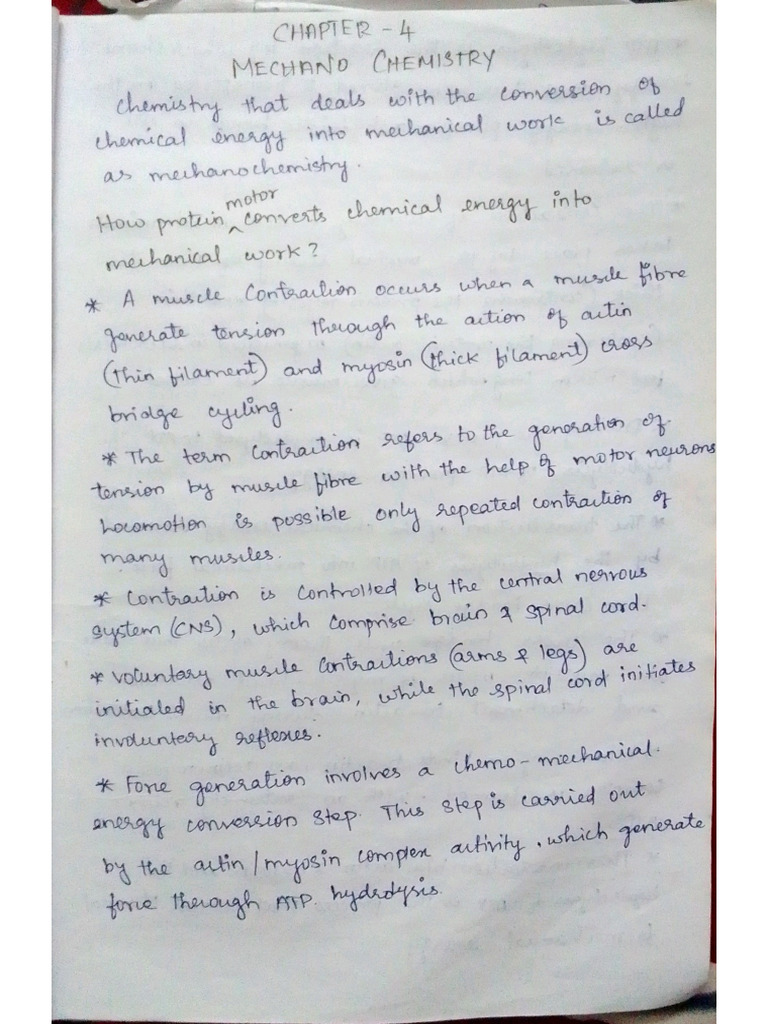 CHAPTER - 4
MECHANO CHEMISTRY
Chemistry that deals with the conversion of
chemical energy into mechanical work is called
as mechanochemistry.
How protein motor converts chemical energy into
mechanical work?
* A muscle contraction occurs when a muscle fibre
generate tension through the action of actin
(thin filament) and myosin (thick filament) cross
bridge cycling.
* The term contraction refers to the generation of
tension by muscle fibre with the help of motor neurons
Locomotion is possible only repeated contraction of
many muscles.
* Contraction is controlled by the central nervous
system (CNS), which comprise brain & spinal cord.
* Voluntary muscle contractions (arms & legs) are
initialed in the brain, while the spinal cord initiates
involuntary reflexes.
* Force generation involves a chemo-mechanical.
energy conversion step. This step is carried out
by the actin/myosin complex activity, which generate
force therough ATP. hydrolysis.